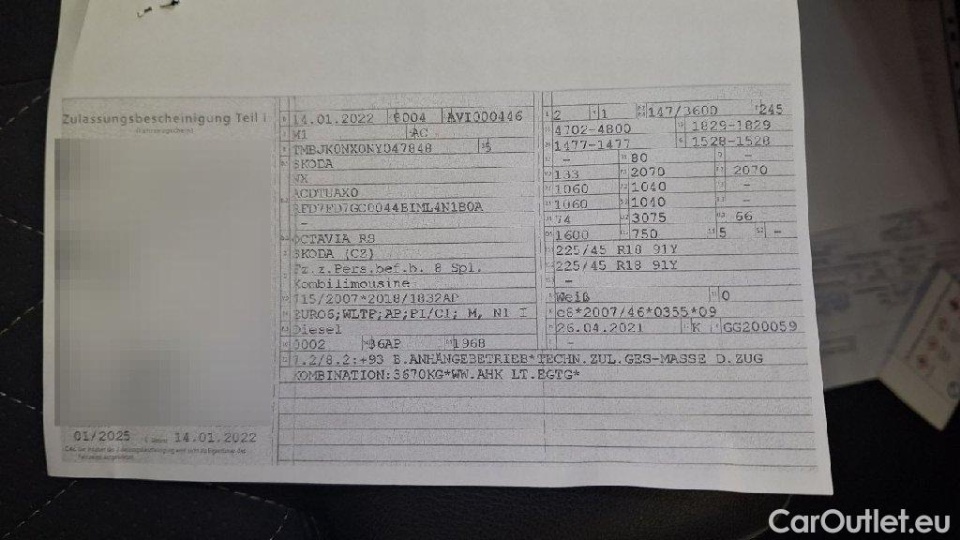 Zulassungsbescheinigung Teil I
14.01.2022 6004 AVI000446
M1 AC
TMBJK0NX0NY047848
SKODA
NX
ACDTUAX0
OCTAVIA RS
SKODA (CZ)
Fz.z.Pers.bef.b. 8 Spl.
Kombilimousine
715/2007*2018/1832AP
EURO6;WLTP;AP;PI/CI; M, N1 I
Diesel
0002 1968
2 1 147/3600 245
4702-4800 1829-1829
1477-1477 1528-1528
- 80 -
133 2070 2070
1060 1040 -
1060 1040 -
74 3075 66
1600 750 5 -
225/45 R18 91Y
225/45 R18 91Y
-
Weiß 0
e8*2007/46*0355*09
26.04.2021 K GG200059
7.2/8.2:+93 B.ANHÄNGEBETRIEB*TECHN.ZUL.GES-MASSE D.ZUG
KOMBINATION:3670KG*WW.AHK LT.EGTG*
01/2025 14.01.2022
CarOutlet.eu